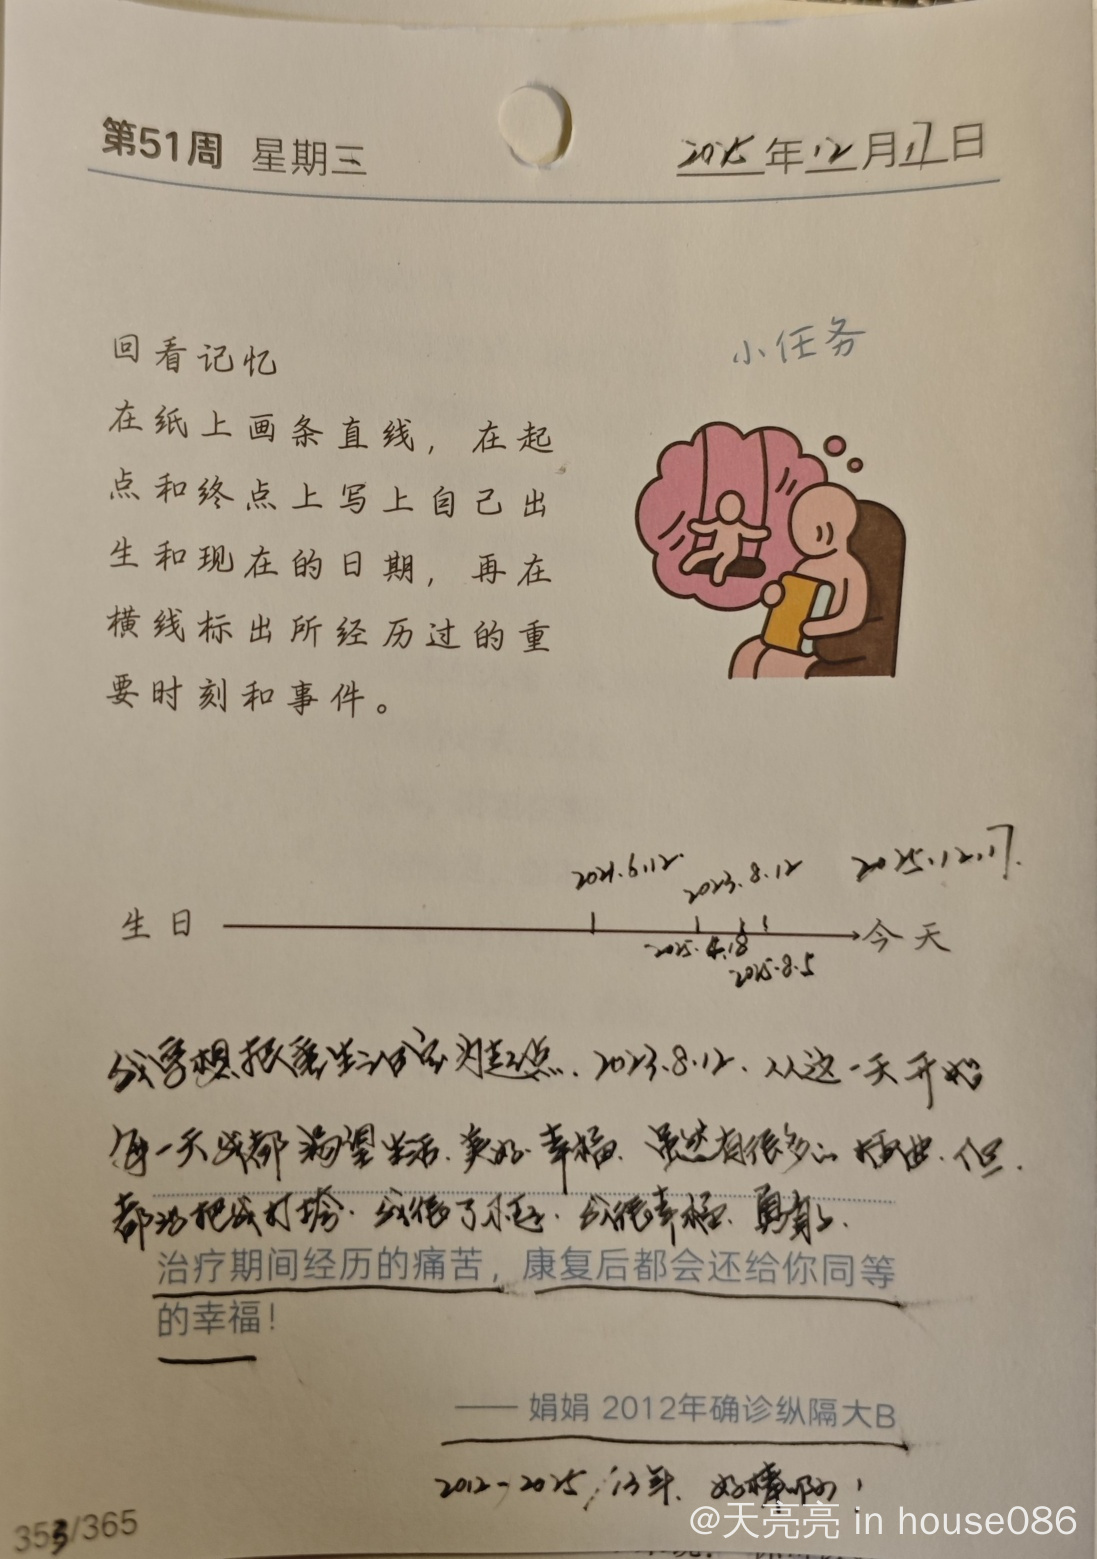 第51周 星期三
2025年12月17日
小任务
回看记忆
在纸上画条直线，在起
点和终点上写上自己出
生和现在的日期，再在
横线标出所经历过的重
要时刻和事件。
2021.6.12.
2023.8.12
2025.12.17.
生日
今天
2025.4.18
2025.8.5
为起点. 2023.8.12. 从这一天开始
每一天我都渴望生活.美好.幸福. 虽然有很多 但.
都 把我打垮. 我很 我很幸福.
治疗期间经历的痛苦，康复后都会还给你同等
的幸福！
—— 娟娟 2012年确诊纵隔大B
2012-2025, 13年. 好棒啊！
353/365
@天亮亮 in house086